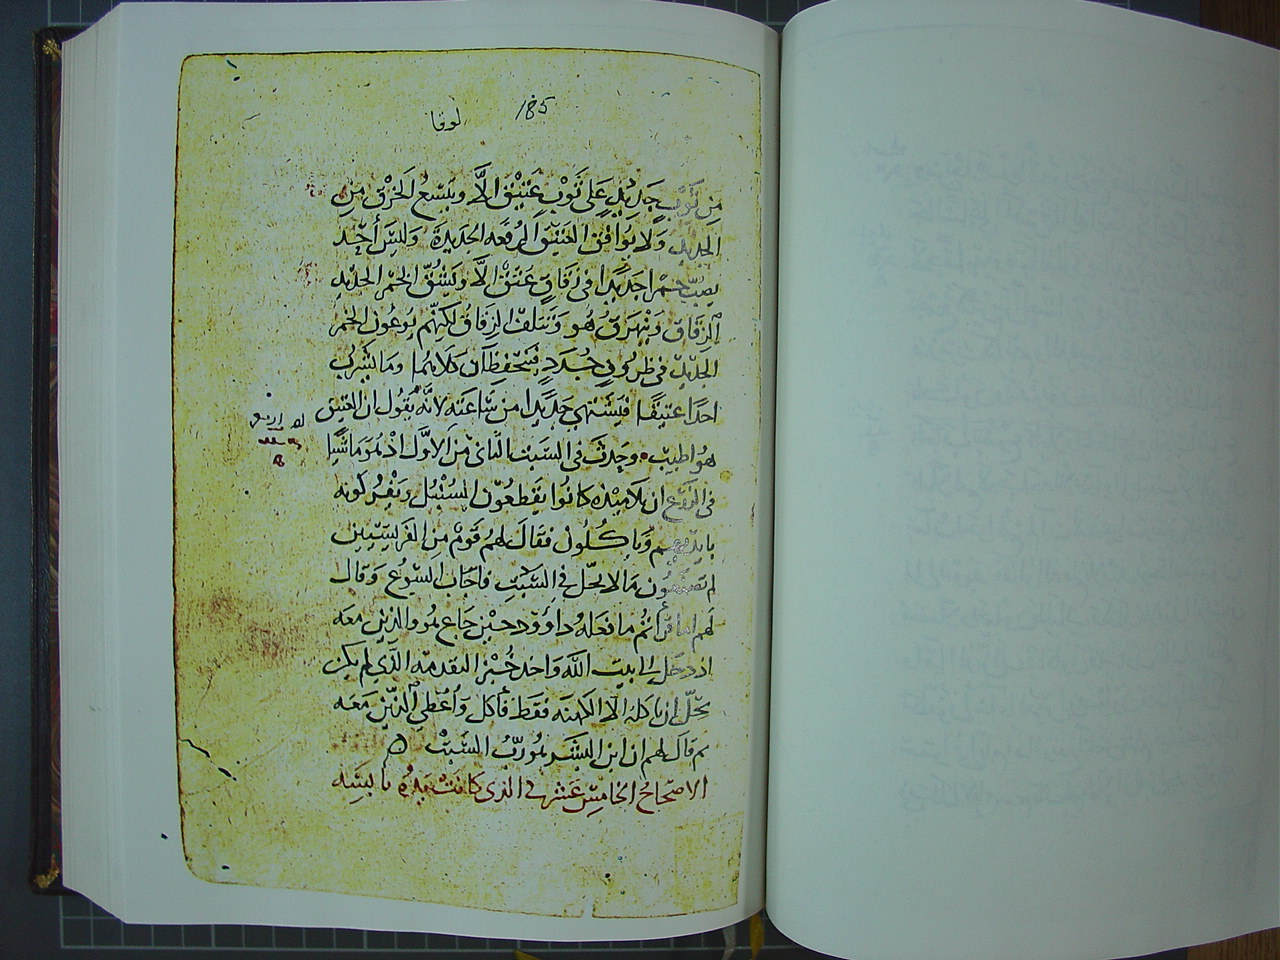 185
لوقا
مِن ثَوْبٍ جَدِيْدٍ عَلى ثَوْبٍ عَتِيْقٍ الَّا ويَتسِعُ الخَرْقُ مِن
الجديد ولا يُوَافِق العَتِيق الرُقعَه الجَدِيدَة وَليسَ أحَد
يصُبّ خمرا جَدِيدًا في زِقَاقٍ عُتقْ الَّا وَيَشُقّ الخمْر الحديد
الزِقَاق وَيُهَرَقُ هُو وتَتلف الزِقَاقُ لكِنّهم يُوعُون الخمْر
الجدِيدَ في ظرُوفٍ جُدَدٍ فيَتحَفظَان كلَاهُمَا ومَا يَشرَب
احدًا عَتِيقًا فيَشتَهِي جَدِيدًا من سَاعَتهِ لانَّه يَقُول ان العتيق
هُو اطيَب • وحَدث في السَبت الثاني مِن الاَوَّل اذ هُو مَاشيًا
في الزَرع ان تلاميذه كانُوا يَقطعُون السُنْبُل ويَفرُكونه
بايديهم وَيَاكُلُون فقال لهُم قَوْمٌ مِن الفَرِيسِيين
لم تصنعُون مَا لا يحَل في السَبتِ فاجَاب ايسُوع وَقال
لهم اما قرَأتُم ما فَعَلهُ داوُود حِيْن جَاع هُو والذين معَه
اذ دخَل الى بيت اللَه واخد خُبْز التقدمَه الَذي لم يكن
يحَلّ ان ياكلهُ الا الكهنَه فقط فأكل وَأعْطي الذّين معَه
ثم قال لهم ان ابن البشَر هُو رَبُّ السَبْت ه
الاصْحَاحُ الخامِسَ عَشر في الذي كانَت يَدُهُ يَابِسَه